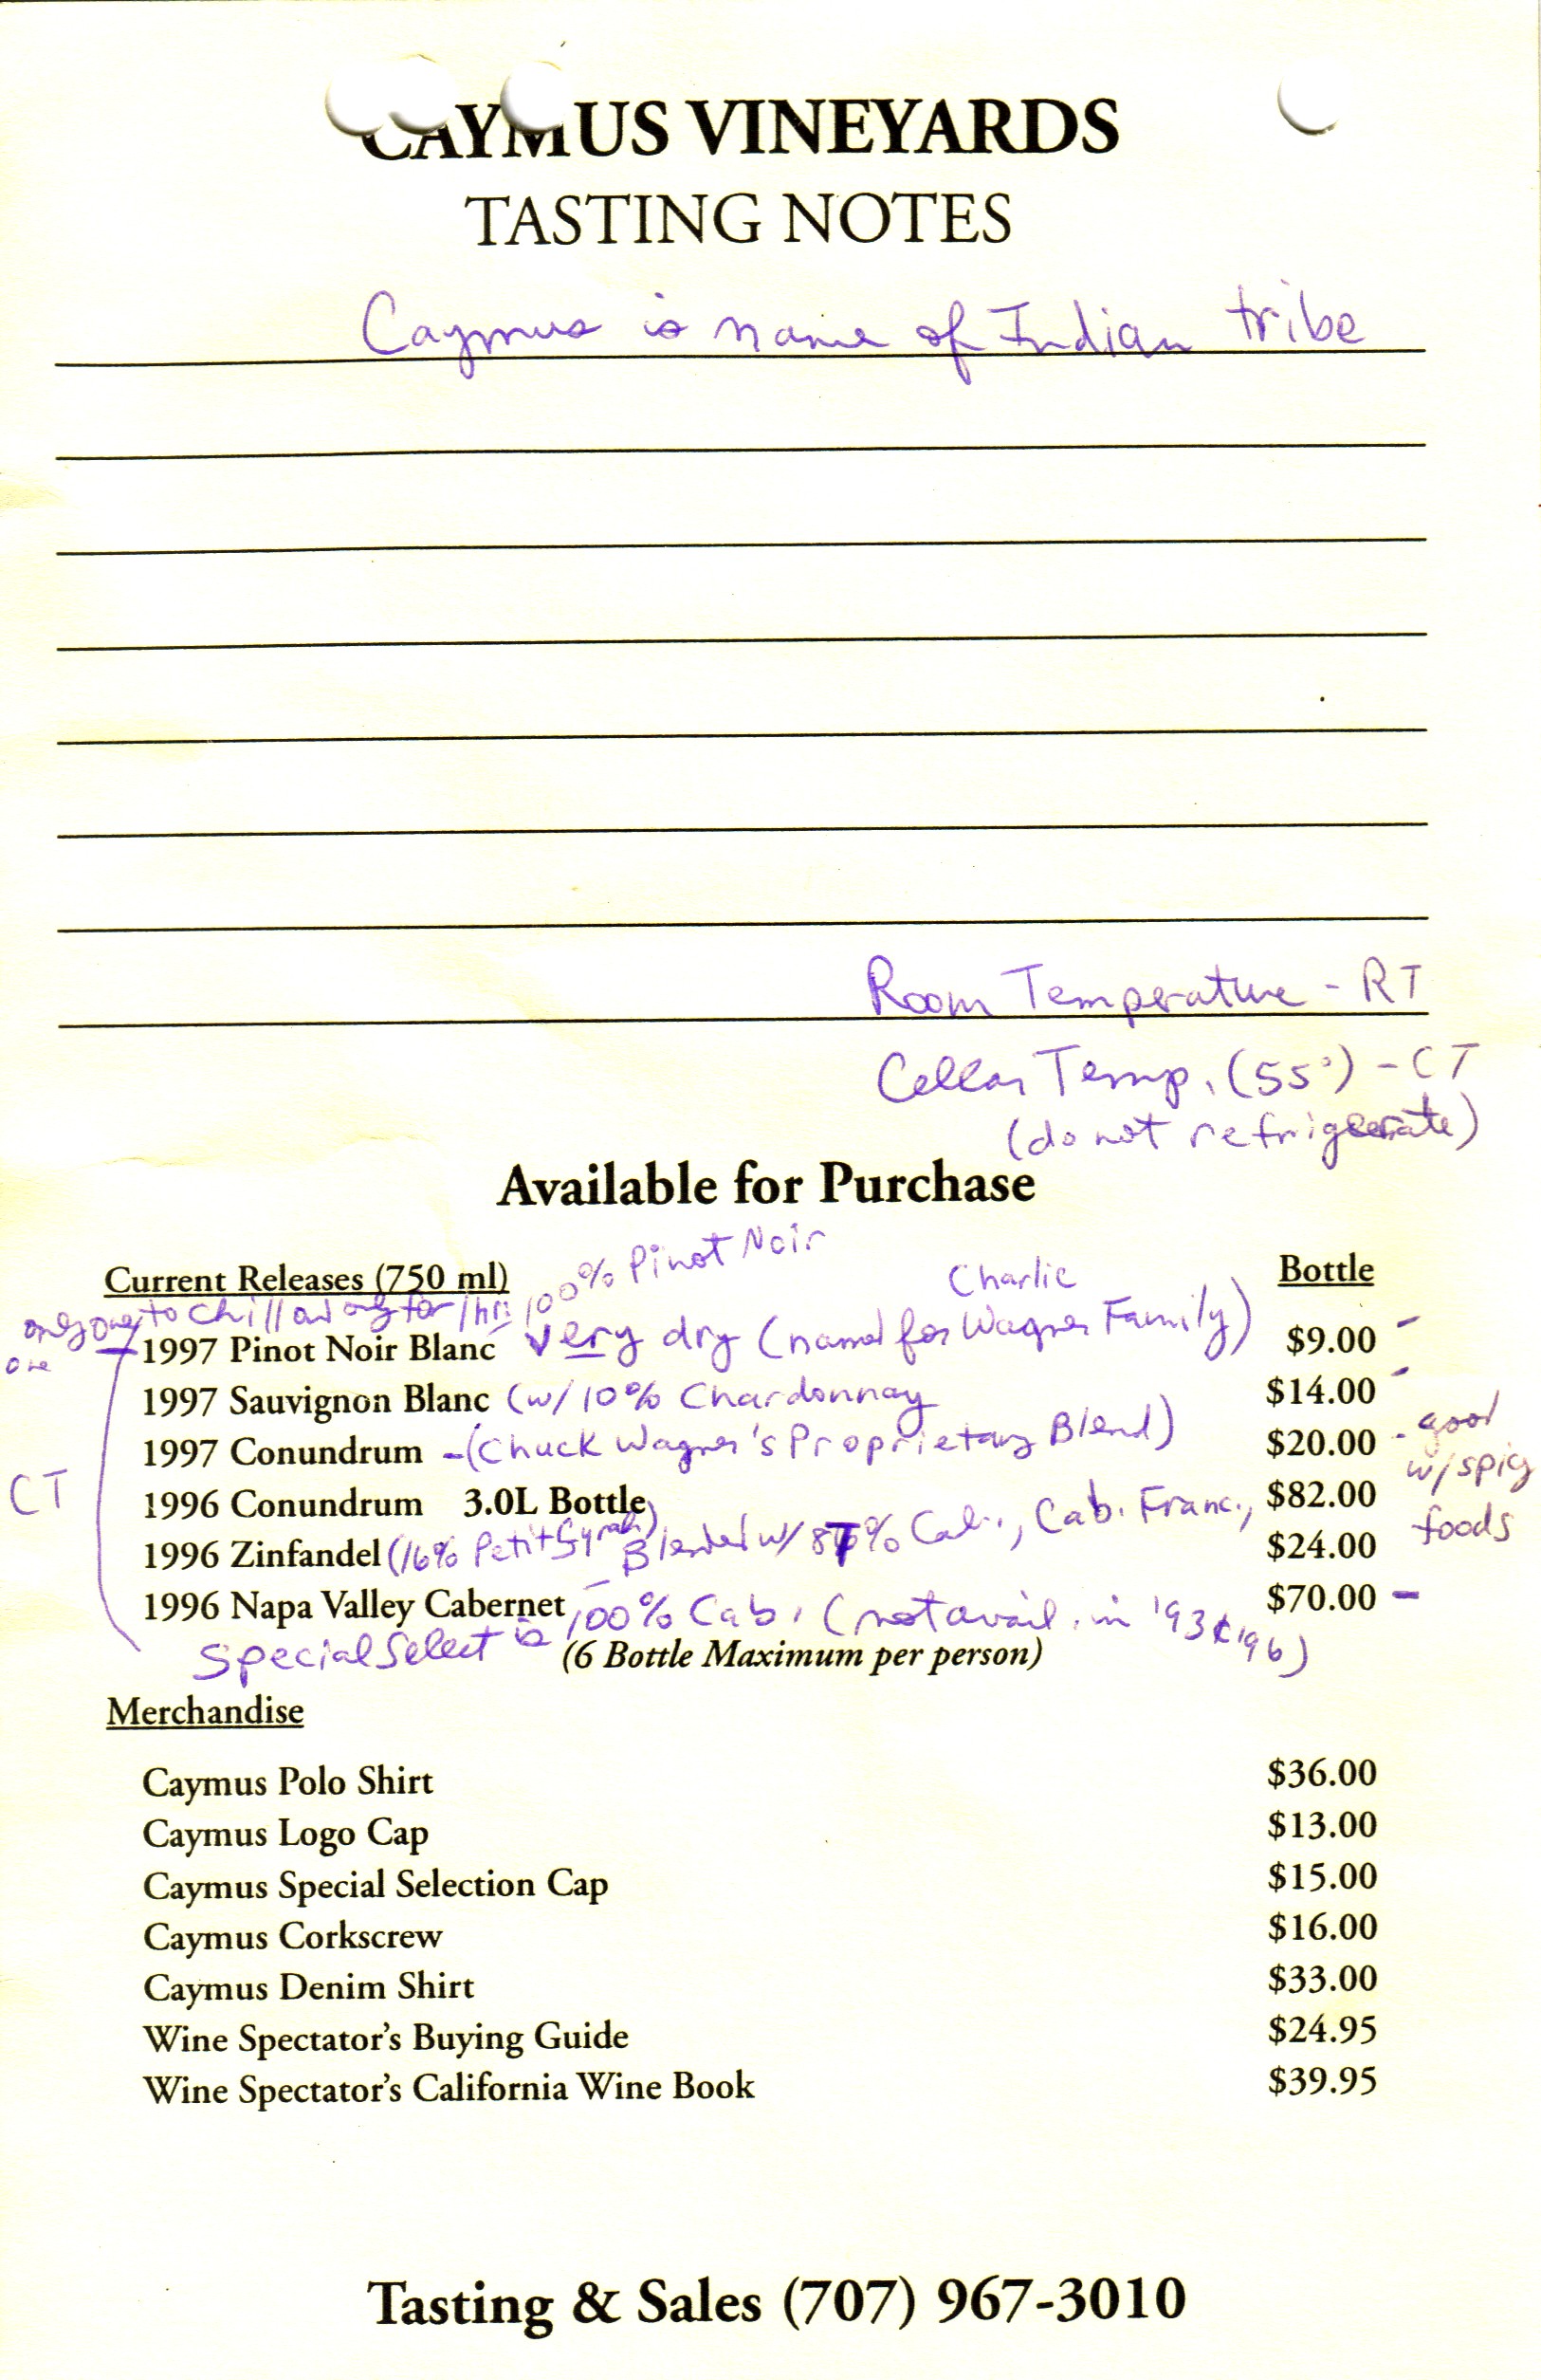 CAYMUS VINEYARDS
TASTING NOTES
Caymus is name of Indian tribe
Room Temperature - RT
Cellar Temp. (55°) - CT
(do not refrigerate)
Available for Purchase
100% Pinot Noir
Current Releases (750 ml)
Charlie
Bottle
to chill and only for 1 hr.
only one
1997 Pinot Noir Blanc very dry (named for Wagner Family) $9.00 -
1997 Sauvignon Blanc (w/ 10% Chardonnay $14.00 -
1997 Conundrum - (Chuck Wagner's Proprietary Blend) $20.00 - good
w/ spicy
foods
CT
1996 Conundrum 3.0L Bottle $82.00
1996 Zinfandel (16% Petit Syrah) $24.00
Blended w/ 87% Cab., Cab. Franc.,
1996 Napa Valley Cabernet $70.00 -
Special Select is 100% Cab. (not avail. in '93 & '96)
(6 Bottle Maximum per person)
Merchandise
Caymus Polo Shirt $36.00
Caymus Logo Cap $13.00
Caymus Special Selection Cap $15.00
Caymus Corkscrew $16.00
Caymus Denim Shirt $33.00
Wine Spectator's Buying Guide $24.95
Wine Spectator's California Wine Book $39.95
Tasting & Sales (707) 967-3010